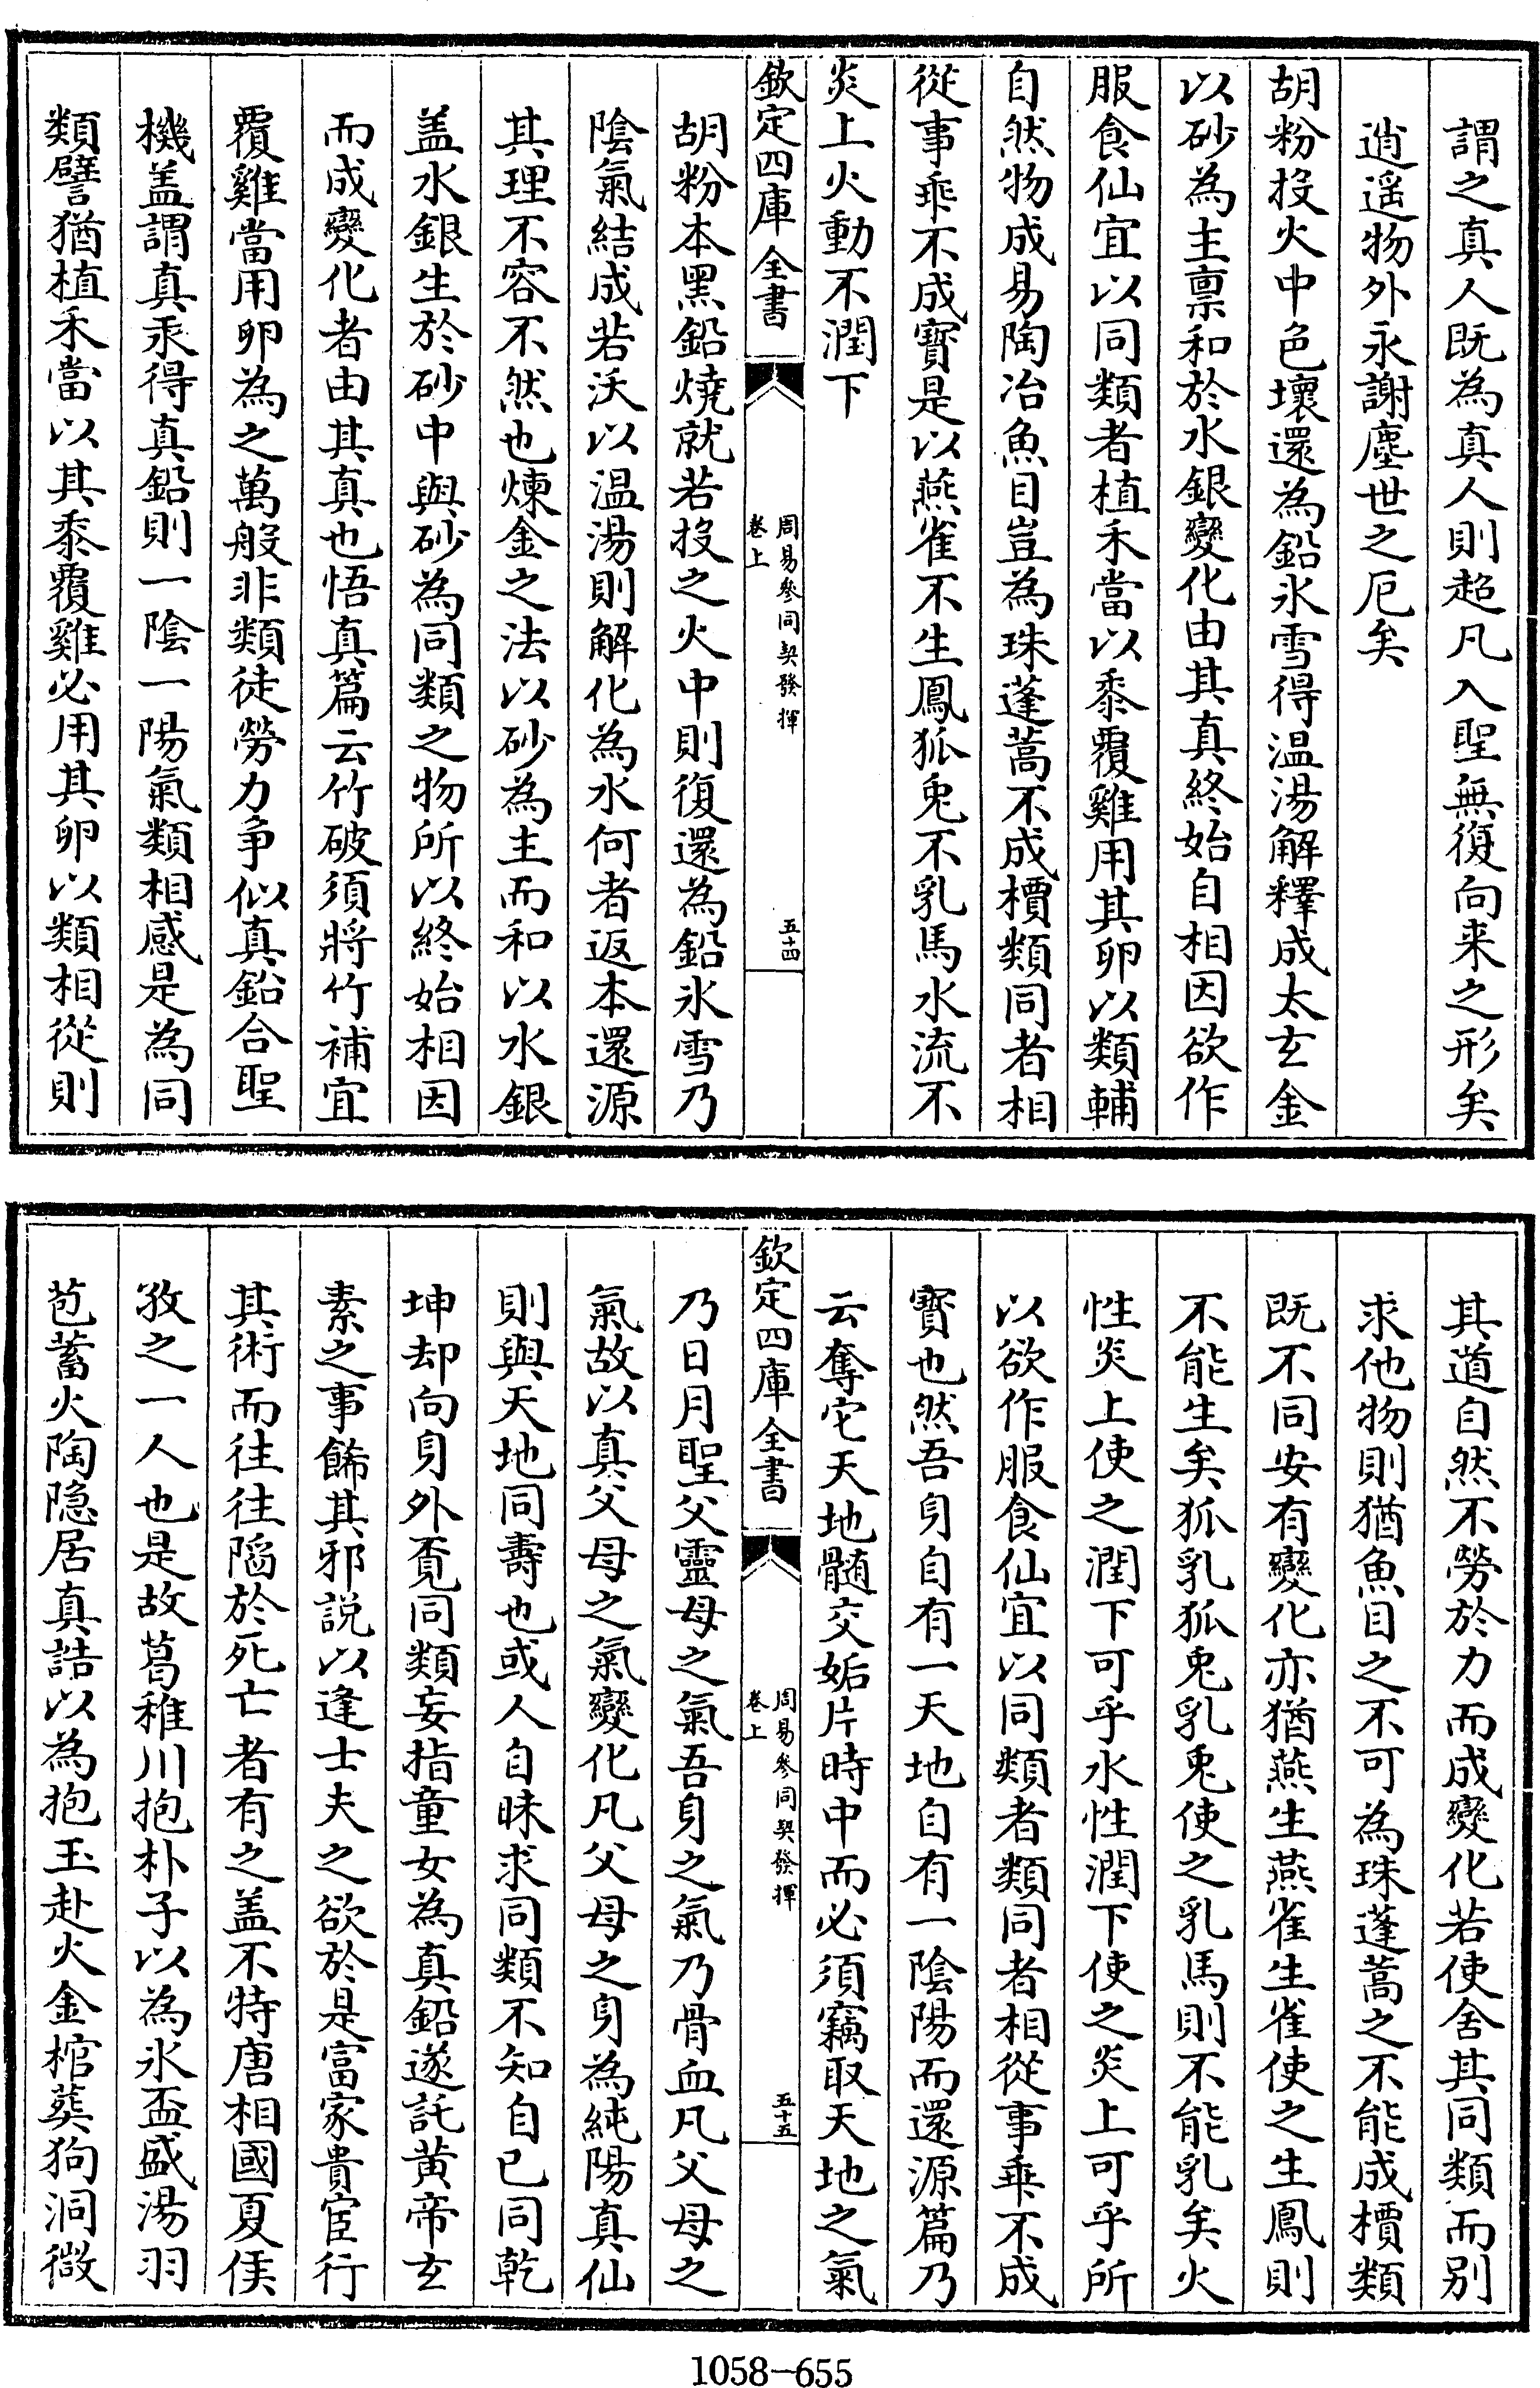 謂之真人既為真人則超凡入聖無復向来之形矣
逍遥物外永謝塵世之厄矣
胡粉投火中色壞還為鉛氷雪得温湯解釋成太玄金
以砂為主禀和於水銀變化由其真終始自相因欲作
服食仙宜以同類者植禾當以黍覆雞用其卵以類輔
自然物成易陶冶魚目豈為珠蓬蒿不成檟類同者相
從事乖不成寳是以燕雀不生鳳狐兎不乳馬水流不
炎上火動不潤下
欽定四庫全書
周易參同契發揮
卷上
五十四
胡粉本黑鉛燒就若投之火中則復還為鉛氷雪乃
隂氣結成若沃以温湯則解化為水何者返本還源
其理不容不然也煉金之法以砂為主而和以水銀
盖水銀生於砂中與砂為同類之物所以終始相因
而成變化者由其真也悟真篇云竹破須將竹補宜
覆雞當用卵為之萬般非類徒勞力争似真鉛合聖
機盖謂真汞得真鉛則一隂一陽氣類相感是為同
類譬猶植禾當以其黍覆雞必用其卵以類相從則
其道自然不勞於力而成變化若使舍其同類而别
求他物則猶魚目之不可為珠蓬蒿之不能成檟類
既不同安有變化亦猶燕生燕雀生雀使之生鳳則
不能生矣狐乳狐兎乳兎使之乳馬則不能乳矣火
性炎上使之潤下可乎水性潤下使之炎上可乎所
以欲作服食仙宜以同類者類同者相從事乖不成
寳也然吾身自有一天地自有一隂陽而還源篇乃
云奪它天地髄交姤片時中而必須竊取天地之氣
欽定四庫全書
周易參同契發揮
卷上
五十五
乃日月聖父靈母之氣吾身之氣乃骨血凡父母之
氣故以真父母之氣變化凡父母之身為純陽真仙
則與天地同壽也或人自昧求同類不知自已同乾
坤却向身外覔同類妄指童女為真鉛遂託黄帝玄
素之事餙其邪説以逢士夫之欲於是富家貴宦行
其術而往往陷於死亡者有之盖不特唐相國夏侯
孜之一人也是故葛稚川抱朴子以為氷盃盛湯羽
苞蓄火陶隐居真誥以為抱玉赴火金棺葬狗洞微
1058-655